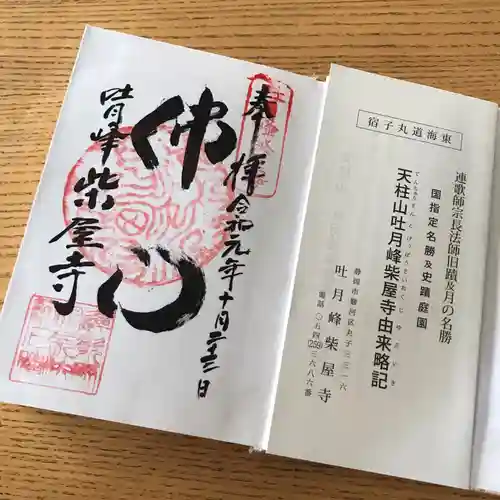 奉拝
令和元年十月二十三日
佛心
吐月峰柴屋寺
東海道丸子宿
連歌師宗長法師旧蹟及月の名勝
国指定名勝及史蹟庭園
天柱山吐月峰柴屋寺由来略記
静岡市駿河区丸子三三一六
吐月峰柴屋寺
電話〇五四(259)三六八六番